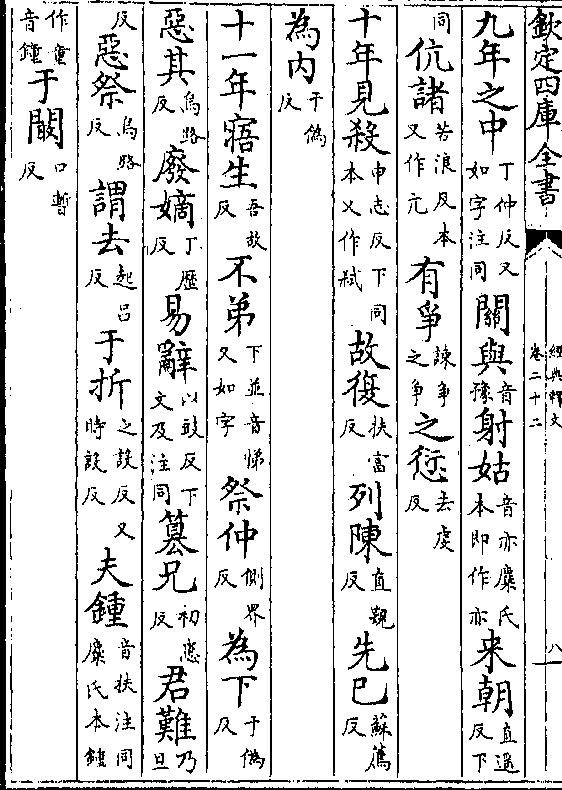 欽定四庫全書
經典釋文
卷二十二
八
九年之中丁仲反又如字注同關與音豫射姑音亦麋氏本即作亦来朝直遥反下
同伉諸苦浪反本又作亢有爭諫爭之爭之愆去虔反
十年見殺申志反下同本又作弑故復扶富反列陳直覲反先巳蘇薦反
為内于偽反
十一年寤生吾故反不弟下並音悌又如字祭仲側界反為下于偽反
惡其烏路反廢嫡丁歷反易辭以豉反下文及注同篡兄初患反君難乃旦
反惡祭烏路反謂去起吕反于折之設反又時設反夫鍾音扶注同麋氏本鍾
作童音鍾于闞口暫反